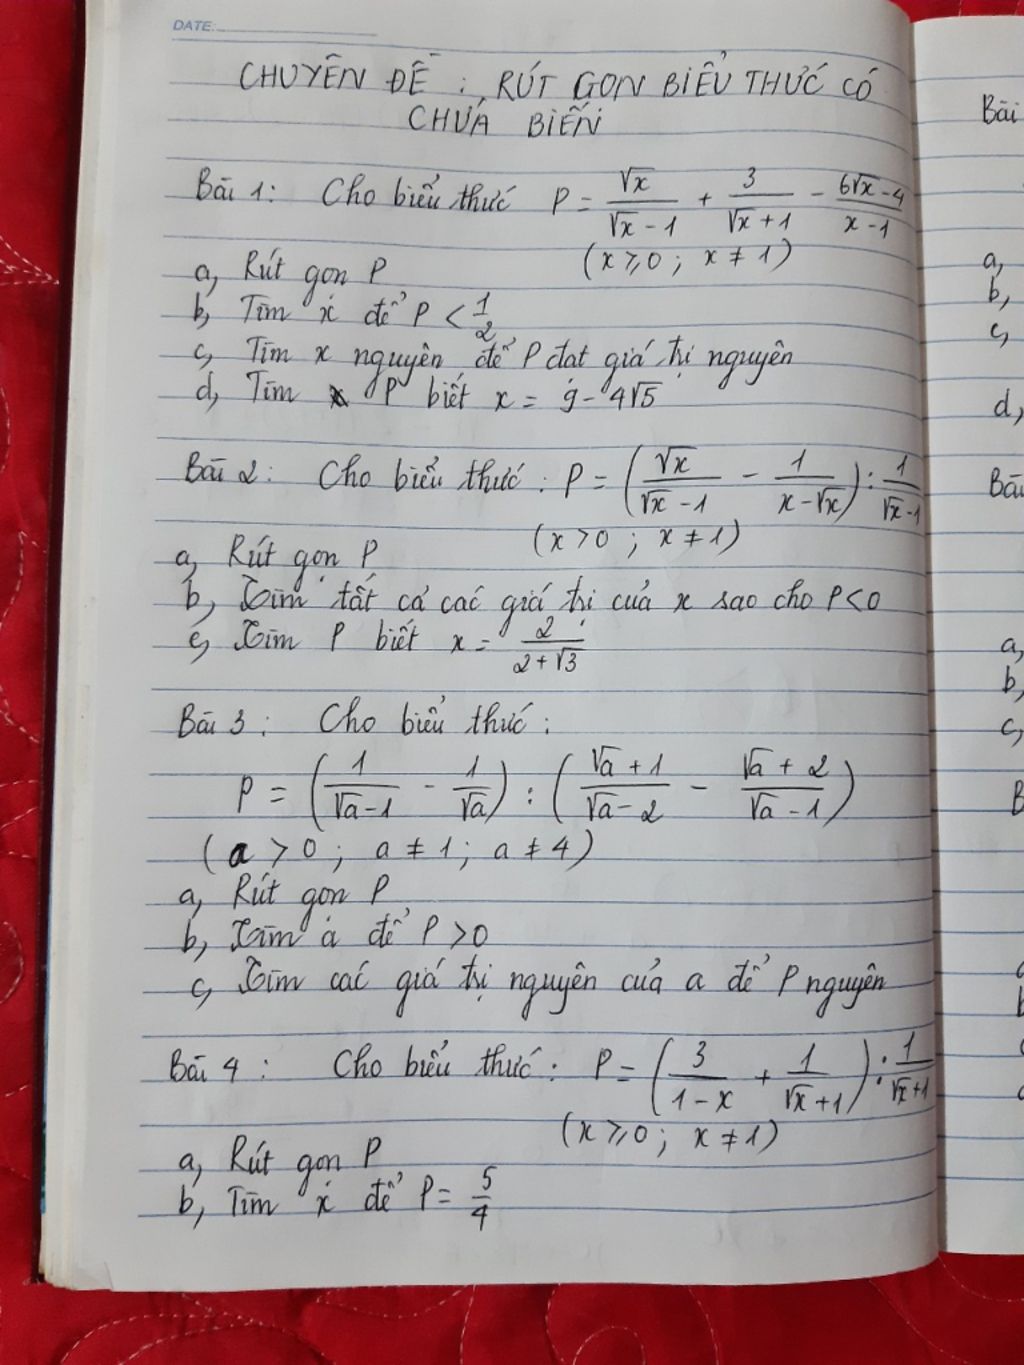 DATE:
CHUYÊN ĐỀ : RÚT GỌN BIỂU THỨC CÓ
CHỨA BIẾN
Bài 1: Cho biểu thức P = √x/(√x - 1) + 3/(√x + 1) - (6√x - 4)/(x - 1)
(x ≥ 0 ; x ≠ 1)
a, Rút gọn P
b, Tìm x để P < 1/2
c, Tìm x nguyên để P đạt giá trị nguyên
d, Tìm P biết x = 9 - 4√5
Bài 2: Cho biểu thức: P = (√x/(√x - 1) - 1/(x - √x)) : 1/(√x - 1)
(x > 0 ; x ≠ 1)
a, Rút gọn P
b, Tìm tất cả các giá trị của x sao cho P < 0
c, Tìm P biết x = 2/(2 + √3)
Bài 3: Cho biểu thức:
P = (1/(√a - 1) - 1/√a) : ((√a + 1)/(√a - 2) - (√a + 2)/(√a - 1))
(a > 0 ; a ≠ 1 ; a ≠ 4)
a, Rút gọn P
b, Tìm a để P > 0
c, Tìm các giá trị nguyên của a để P nguyên
Bài 4: Cho biểu thức: P = (3/(1 - x) + 1/(√x + 1)) : 1/(√x + 1)
(x ≥ 0 ; x ≠ 1)
a, Rút gọn P
b, Tìm x để P = 5/4
Bài
a,
b,
c,
d,
Bài
a,
b,
c,